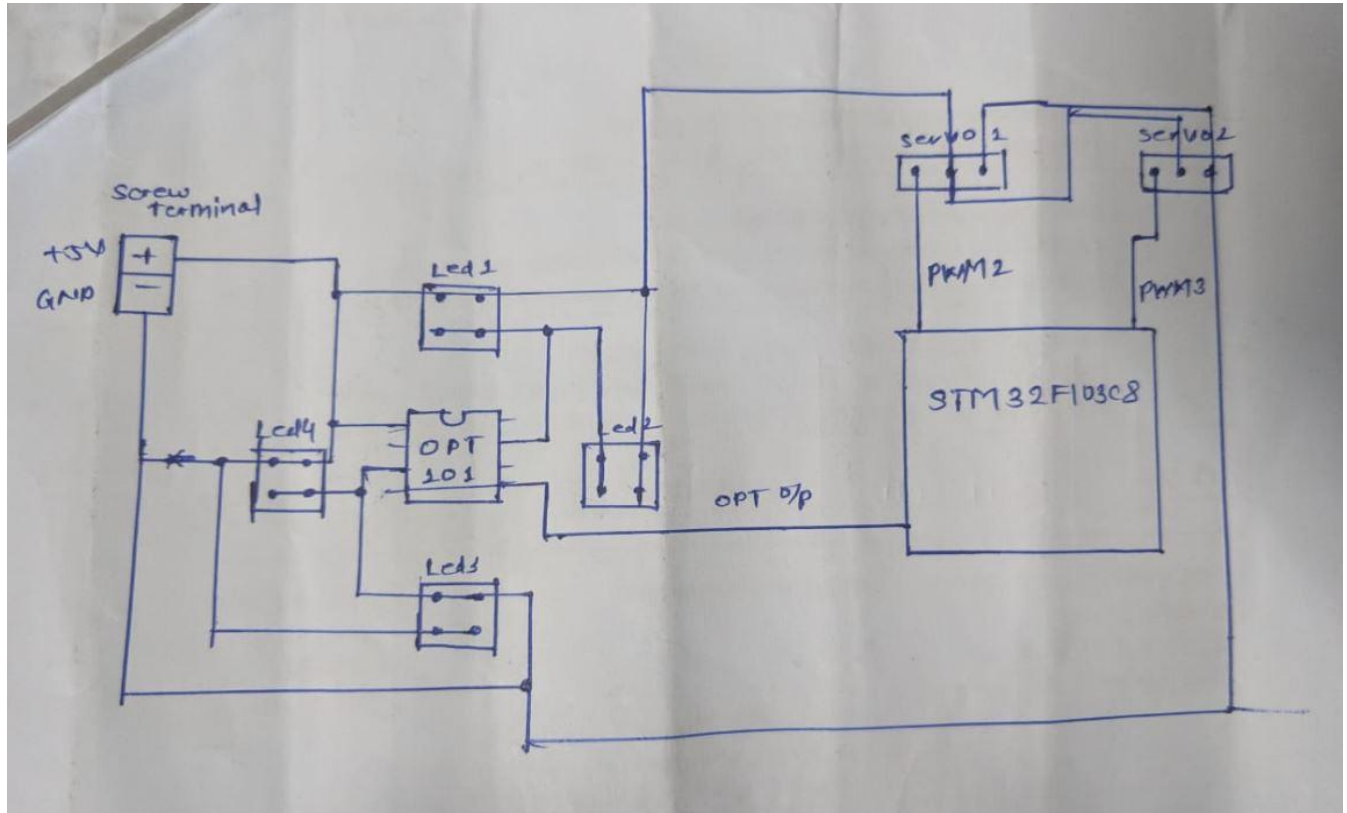 Screw
terminal
+5V
+
GND
-
Led 1
Led4
OPT
101
Led2
Led3
OPT O/P
servo 1
servo2
PWM2
PWM3
STM32F103C8